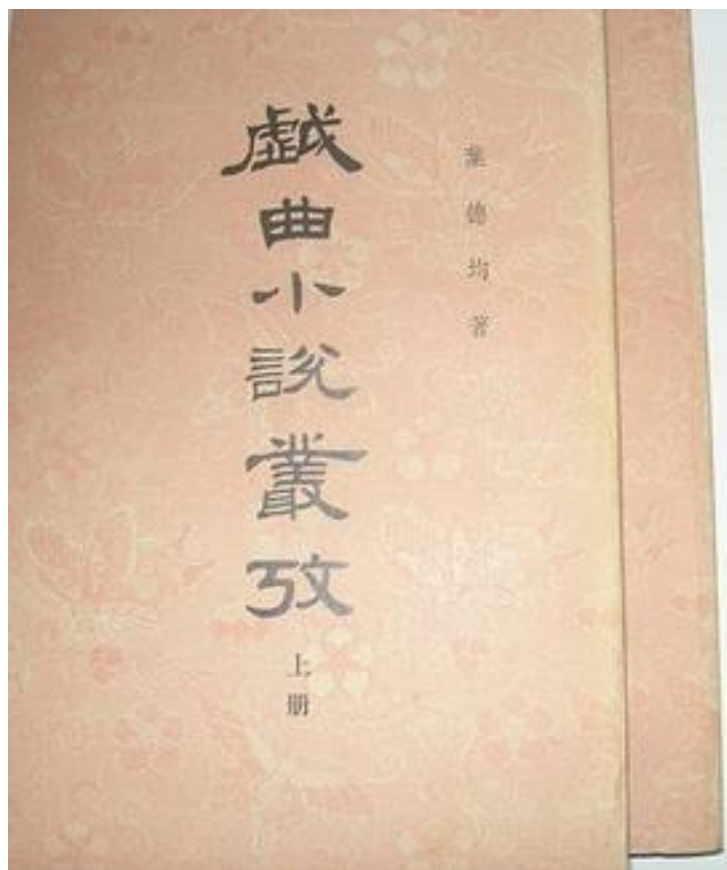 葉德均著
戯曲小説叢攷
上册